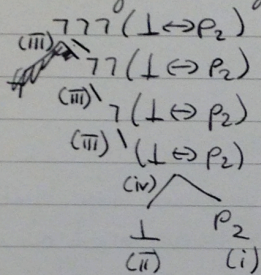 ¬¬¬(⊥↔p₂)
(iii) ¬¬(⊥↔p₂)
(iii) ¬(⊥↔p₂)
(iii) (⊥↔p₂)
(iv)
⊥ p₂
(ii) (i)